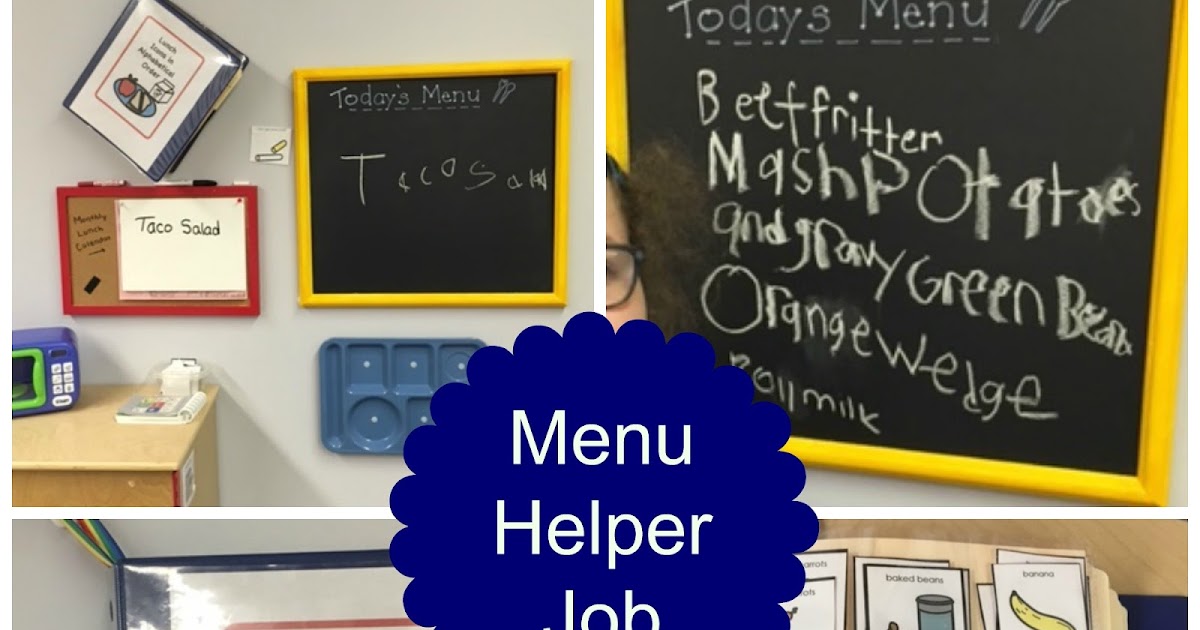 Lunch
Icons in
Alphabetical
Order
Today's Menu
Taco Salad
Monthly
Lunch
Calendar
Taco Salad
Today's Menu
Beef fritter
Mash Potatoes
and gravy Green Beans
Orange Wedge
Roll milk
Menu
Helper
Job
baked beans
banana